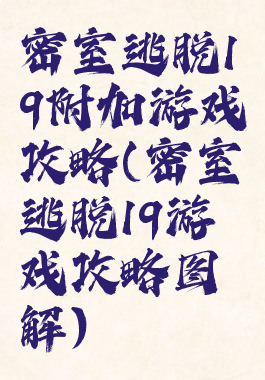 密室逃脱1
9附加游戏
攻略(密室
逃脱19游
戏攻略图
解)